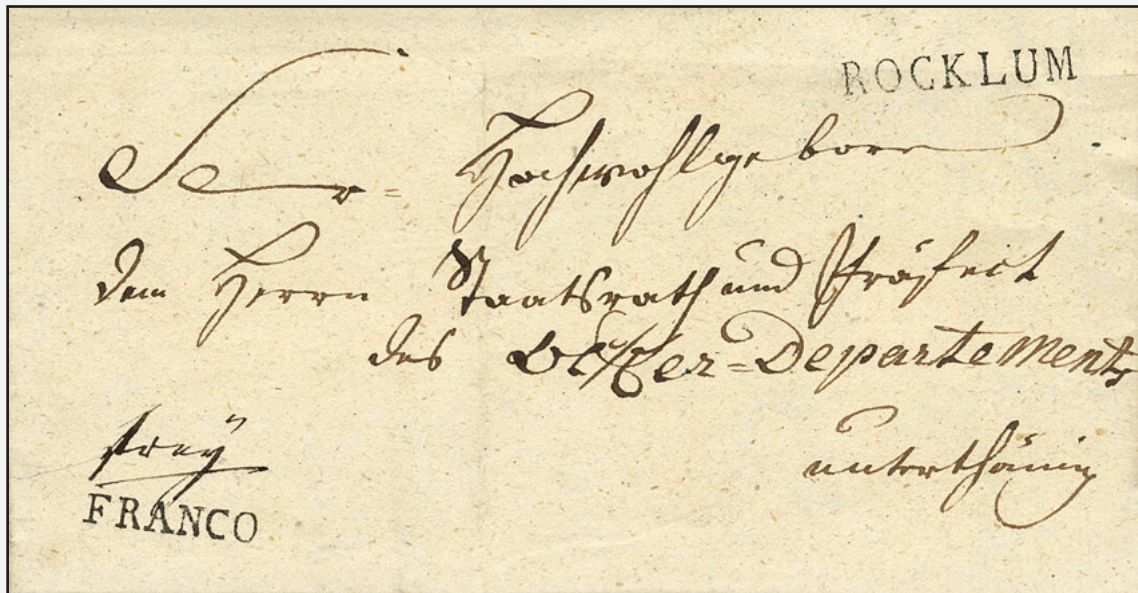 ROCKLUM
Sr= Hochwohlgeborn
dem Herrn Staatsrath und Präfect
des Ocker=Departements
frey
unterthänig
FRANCO